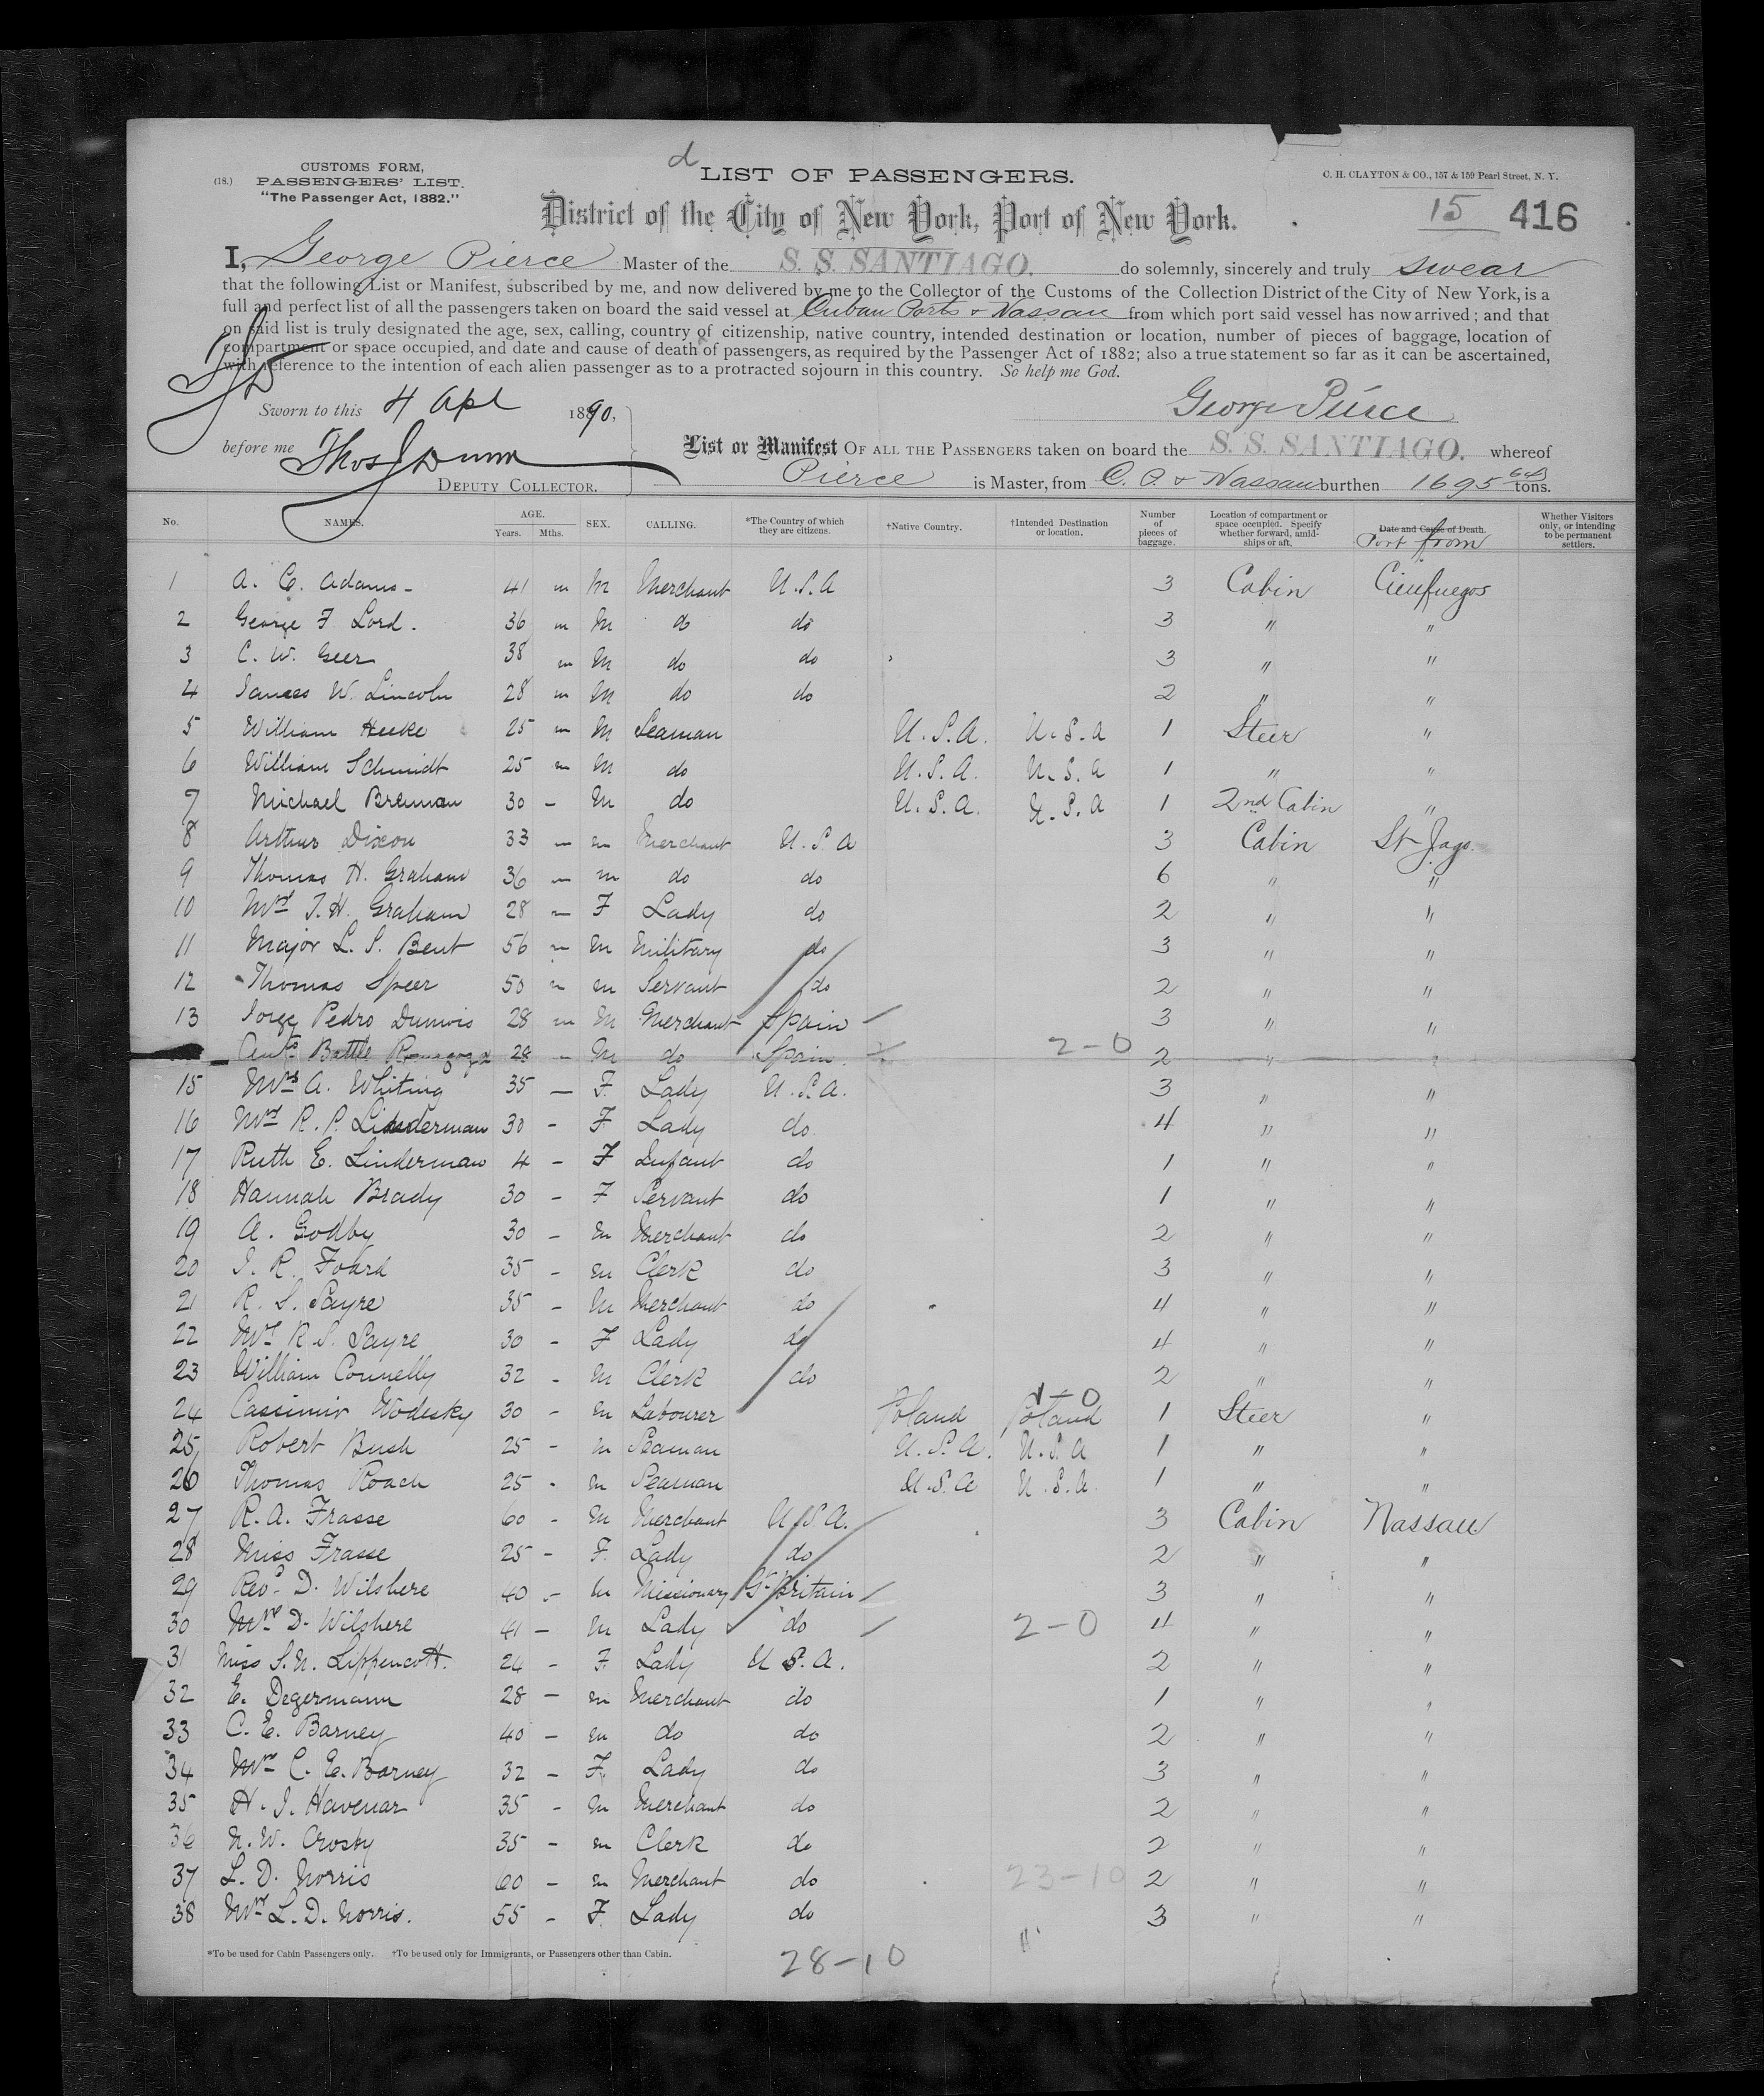 d
CUSTOMS FORM,
(18.) PASSENGERS' LIST.
"The Passenger Act, 1882."
LIST OF PASSENGERS.
C. H. CLAYTON & CO., 157 & 159 Pearl Street, N. Y.
District of the City of New York, Port of New York.
15 416
I, George Pierce Master of the S. S. SANTIAGO. do solemnly, sincerely and truly swear
that the following List or Manifest, subscribed by me, and now delivered by me to the Collector of the Customs of the Collection District of the City of New York, is a
full and perfect list of all the passengers taken on board the said vessel at Cuban Ports & Nassau from which port said vessel has now arrived; and that
on said list is truly designated the age, sex, calling, country of citizenship, native country, intended destination or location, number of pieces of baggage, location of
compartment or space occupied, and date and cause of death of passengers, as required by the Passenger Act of 1882; also a true statement so far as it can be ascertained,
with reference to the intention of each alien passenger as to a protracted sojourn in this country. So help me God.
Sworn to this 4 Apl 1890,
George Pierce
before me Thos J Dunn
DEPUTY COLLECTOR.
List or Manifest OF ALL THE PASSENGERS taken on board the S. S. SANTIAGO. whereof
Pierce is Master, from C. P. & Nassau burthen 1695 tons.
No. NAMES. AGE. Years. Mths. SEX. CALLING. *The Country of which they are citizens. †Native Country. †Intended Destination or location. Number of pieces of baggage. Location of compartment or space occupied. Specify whether forward, amidships or aft. Date and Cause of Death. Port from Whether Visitors only, or intending to be permanent settlers.
1 A. C. Adams 41 m M Merchant U.S.A 3 Cabin Cienfuegos
2 George F Lord. 36 m M do do 3 " "
3 C. W. Geer 38 m M do do 3 " "
4 James W. Lincoln 28 m M do do 2 " "
5 William Heeke 25 m M Seaman U.S.A. U.S.A 1 Steer "
6 William Schmidt 25 m M do U.S.A. U.S.A 1 " "
7 Michael Brennan 30 - M do U.S.A. U.S.A 1 2nd Cabin "
8 Arthur Dixon 33 - m Merchant U.S.A 3 Cabin St Jago.
9 Thomas H. Graham 36 - m do do 6 " "
10 Mrs T. H. Graham 28 - F Lady do 2 " "
11 Major L. S. Bent 56 - M Military do 3 " "
12 Thomas Speer 50 - m Servant do 2 " "
13 Jorge Pedro 28 - M Merchant Spain 3 " "
Anto Battle 28 - M do Spain 2-0 2 " "
15 Mrs A. Whiting 35 - F. Lady U.S.A. 3 " "
16 Mrs R. P. Linderman 30 - F Lady do 4 " "
17 Ruth E. Linderman 4 - F Infant do 1 " "
18 Hannah Brady 30 - F Servant do 1 " "
19 A. Godby 30 - m Merchant do 2 " "
20 J. R. Foard 35 - m Clerk do 3 " "
21 R. S. Sayre 35 - M Merchant do 4 " "
22 Mrs R. S. Sayre 30 - F Lady do 4 " "
23 William Connelly 32 - M Clerk do 2 " "
24 Cassimir Wodesky 30 - m Labourer Poland Poland 1-0 1 Steer "
25 Robert Bush 25 - m Seaman U.S.A. U.S.A 1 " "
26 Thomas Roach 25 - m Seaman U.S.A U.S.A. 1 " "
27 R. A. Frasse 60 - M Merchant U.S.A. 3 Cabin Nassau
28 Miss Frasse 25 - F. Lady do 2 " "
29 Revd D. Wilshere 40 - M Missionary Gt Britain 3 " "
30 Mrs D. Wilshere 41 - M Lady do 2-0 4 " "
31 Miss S. N. Lippencott. 24 - F. Lady U.S.A. 2 " "
32 E. Degermann 28 - m Merchant do 1 " "
33 C. E. Barney 40 - m do do 2 " "
34 Mrs C. E. Barney 32 - F. Lady do 3 " "
35 H. J. Havenar 35 - m Merchant do 2 " "
36 N. W. Crosby 35 - m Clerk do 2 " "
37 L. D. Norris 60 - m Merchant do 23-10 2 " "
38 Mrs L. D. Norris. 55 - F. Lady do 3 " "
*To be used for Cabin Passengers only. †To be used only for Immigrants, or Passengers other than Cabin.
28-10